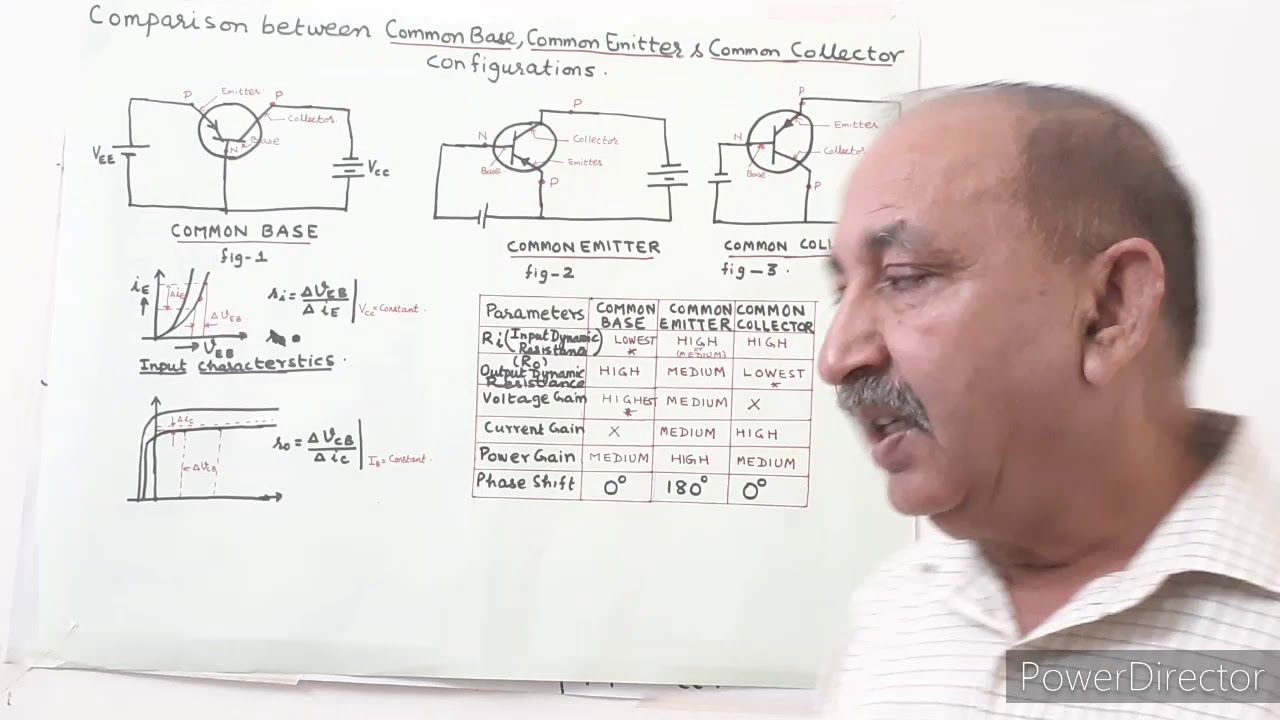 Comparison between Common Base, Common Emitter & Common Collector
Configurations.
P Emitter P
Collector
Base
N
VEE
VCC
COMMON BASE
fig-1
P
N
Collector
Base
Emitter
P
COMMON EMITTER
fig-2
P
N
Emitter
Collector
Base
P
COMMON COLL
fig-3.
iE
ΔiE
ΔVEB
VEB
ri = ΔVEB / ΔiE | VCC = Constant.
Input characterstics.
Δic
ΔVCB
ro = ΔVCB / Δic | IB = Constant.
Parameters COMMON BASE COMMON EMITTER COMMON COLLECTOR
Ri (Input Dynamic Resistana) LOWEST * HIGH or (MEDIUM) HIGH
(Ro) Output Dynamic Resistance HIGH MEDIUM LOWEST *
Voltage Gain HIGHEST * MEDIUM X
Current Gain X MEDIUM HIGH
Power Gain MEDIUM HIGH MEDIUM
Phase Shift 0° 180° 0°
PowerDirector